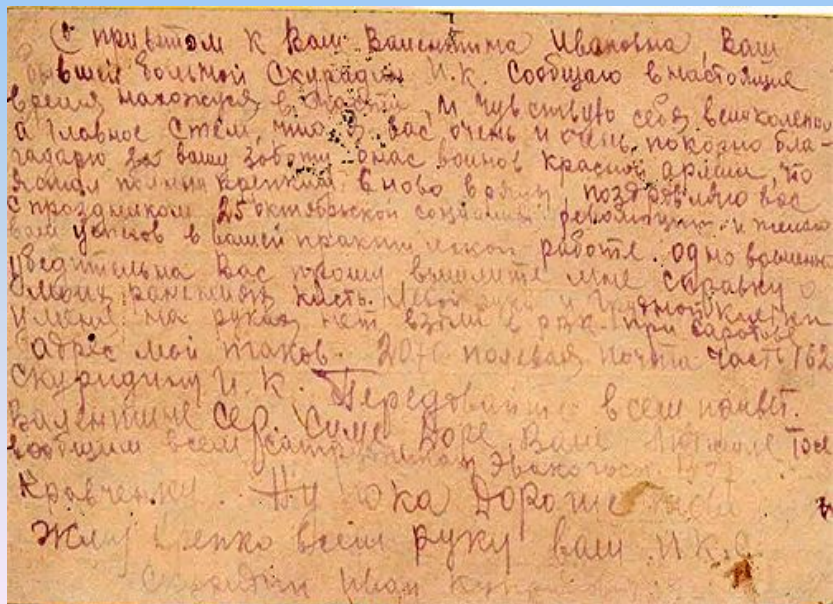 С приветом к Вам Валентина Ивановна, Ваш
бывшей больной Скуридин И.К. Сообщаю в настоящие
время нахожуся в части, и чувствую себя
а главное стем, что я вас очень и очень покорно бла-
гадарю за вашу заботу онас воинов красной армии, что
я стал крепким вново поздровляю вас
с проздником 25 октябрьской революции и желаю
вам успехов в вашей практической работе. одно временно
убедительна Вас прошу вышлите мне справку о
моих ранениях кисть левой руки и грудной клетки
у меня на руках нет взяли в при саротове
адрес мой таков. 2070 полевая почта часть 162
Скуридину И.К. Передовайте всем привет.
Валентине Сер. Симе Доре Тосе
вообщим всем
Кравченку. Ну пока Дорогие
Жму крепко всем руку ваш И.К.С.
Скуридин Иван